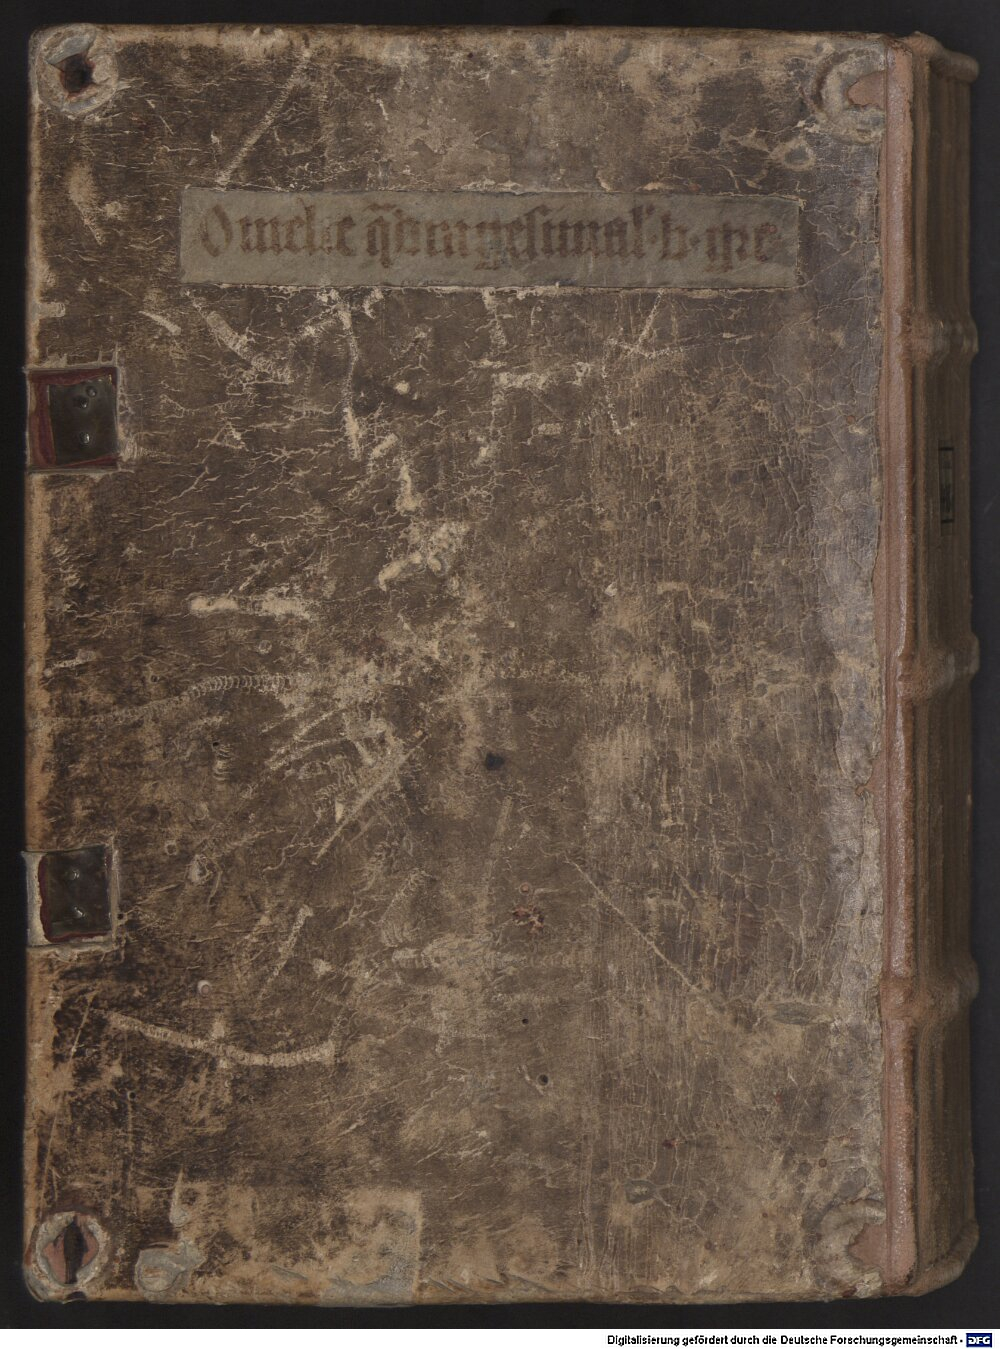 Omelie q̄dragesimal' b. gre
Digitalisierung gefördert durch die Deutsche Forschungsgemeinschaft - DFG